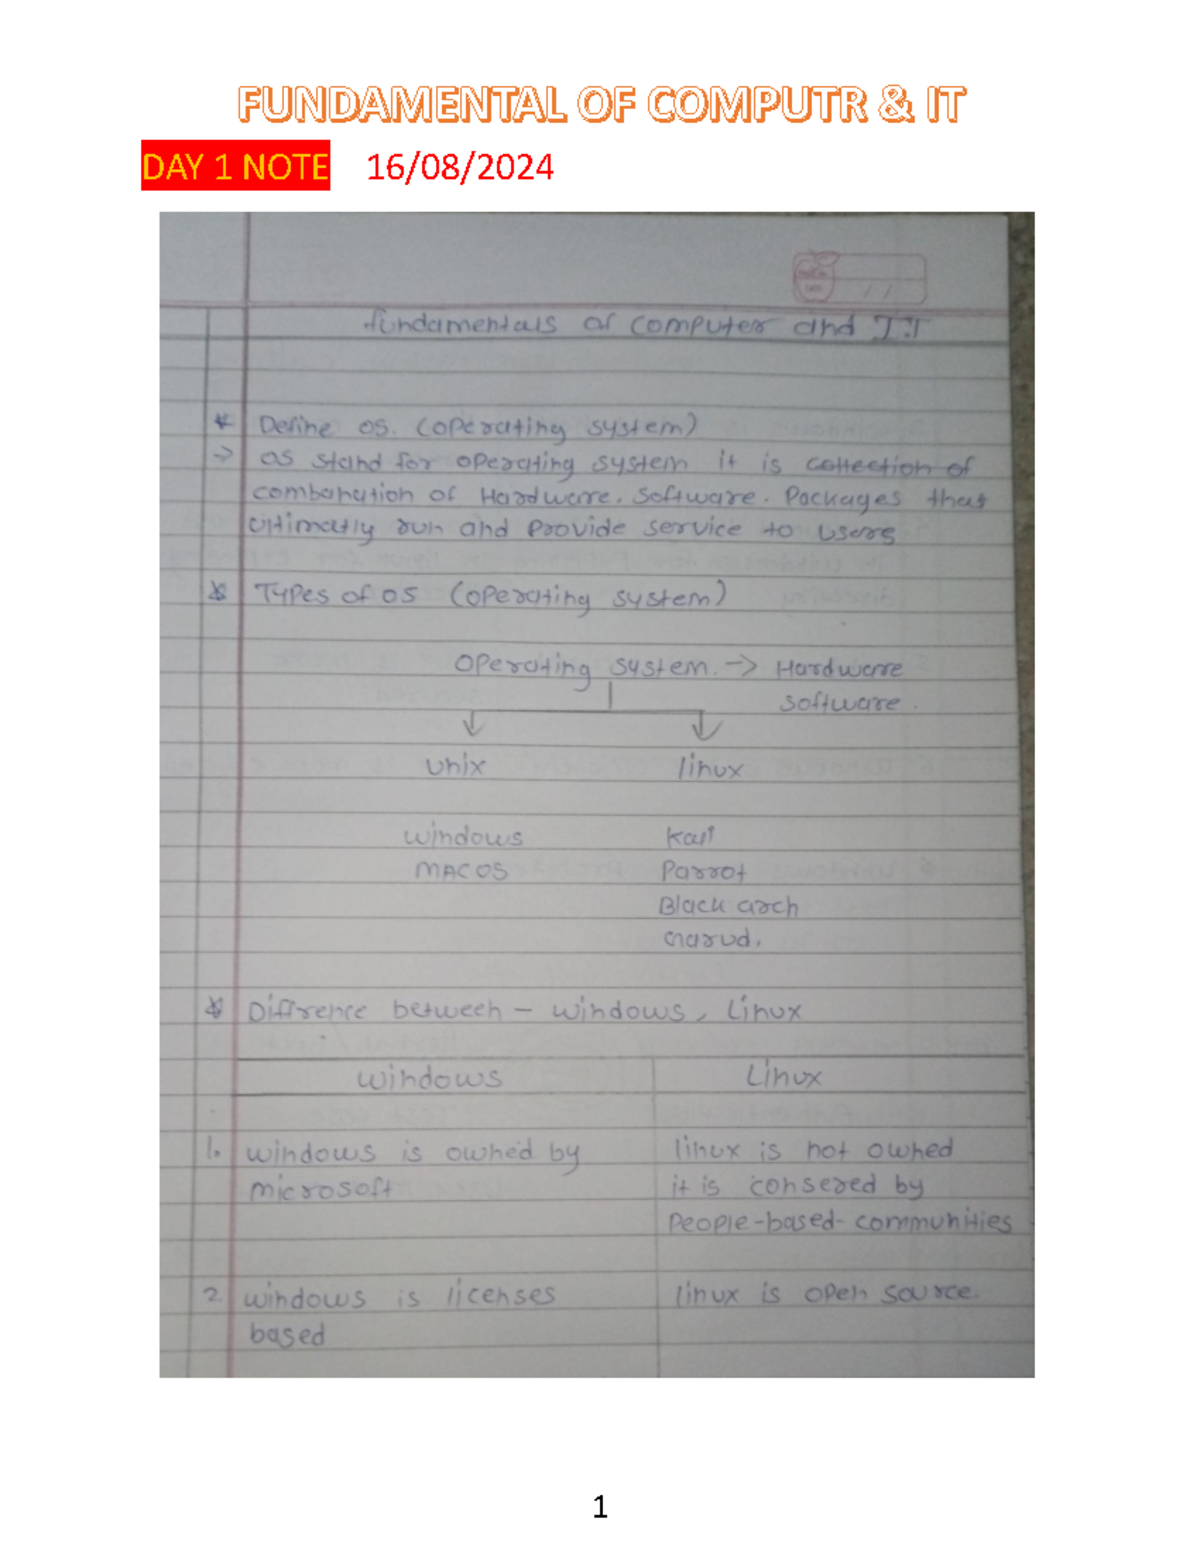 FUNDAMENTAL OF COMPUTR & IT
DAY 1 NOTE 16/08/2024
fundamentals of computer and I.T
* Define os. (operating system)
-> os stand for operating system it is collection of
combanation of Hardware, Software. Packages that
ultimatly run and Provide service to users
* Types of os (operating system)
operating system. -> Hardware
software.
unix linux
windows Kali
MACOS Parrot
Black arch
Garud.
* Diffrence between - windows, Linux
windows Linux
1. windows is owned by linux is not owned
microsoft it is consered by
People-based-communities
2. windows is licenses linux is open source.
based
1